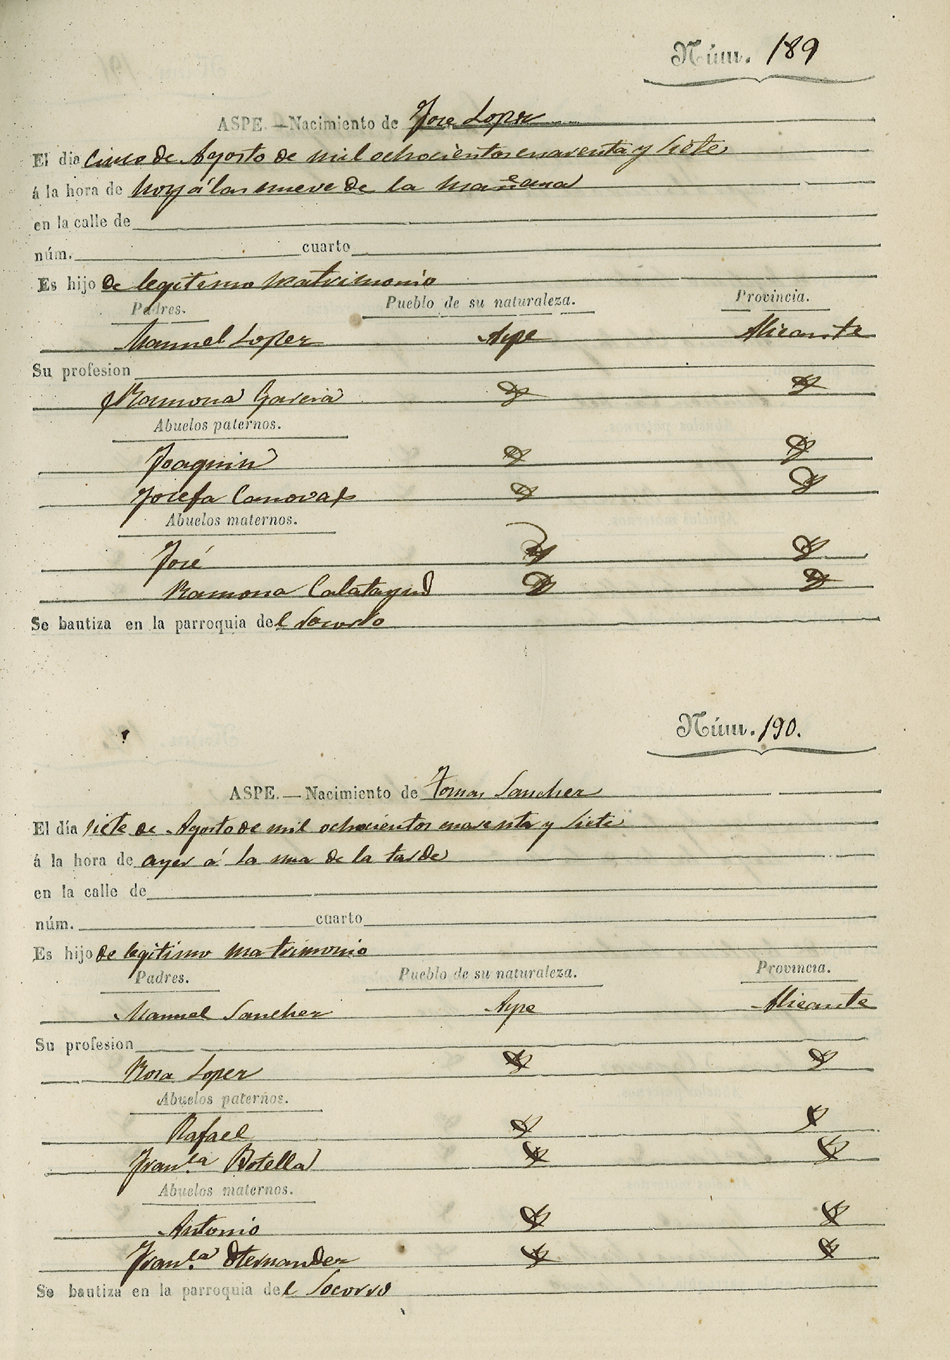 Núm. 189
ASPE.—Nacimiento de Jose Lopez
El dia Cinco de Agosto de mil ochocientos cuarenta y siete
á la hora de hoy á las nueve de la mañana
en la calle de
núm. cuarto
Es hijo de legitimo matrimonio
Padres. Pueblo de su naturaleza. Provincia.
Manuel Lopez Aspe Alicante
Su profesion
Ramona Garcia
Abuelos paternos.
Joaquin
Josefa Canovas
Abuelos maternos.
José
Ramona Calatayud
Se bautiza en la parroquia del Socorro
Núm. 190.
ASPE.—Nacimiento de Tomas Sanchez
El día siete de Agosto de mil ochocientos cuarenta y siete
á la hora de ayer á la una de la tarde
en la calle de
núm. cuarto
Es hijo de legitimo matrimonio
Padres. Pueblo de su naturaleza. Provincia.
Manuel Sanchez Aspe Alicante
Su profesion
Rosa Lopez
Abuelos paternos.
Rafael
Fran.ca Botella
Abuelos maternos.
Antonio
Fran.ca Hernandez
Se bautiza en la parroquia del Socorro